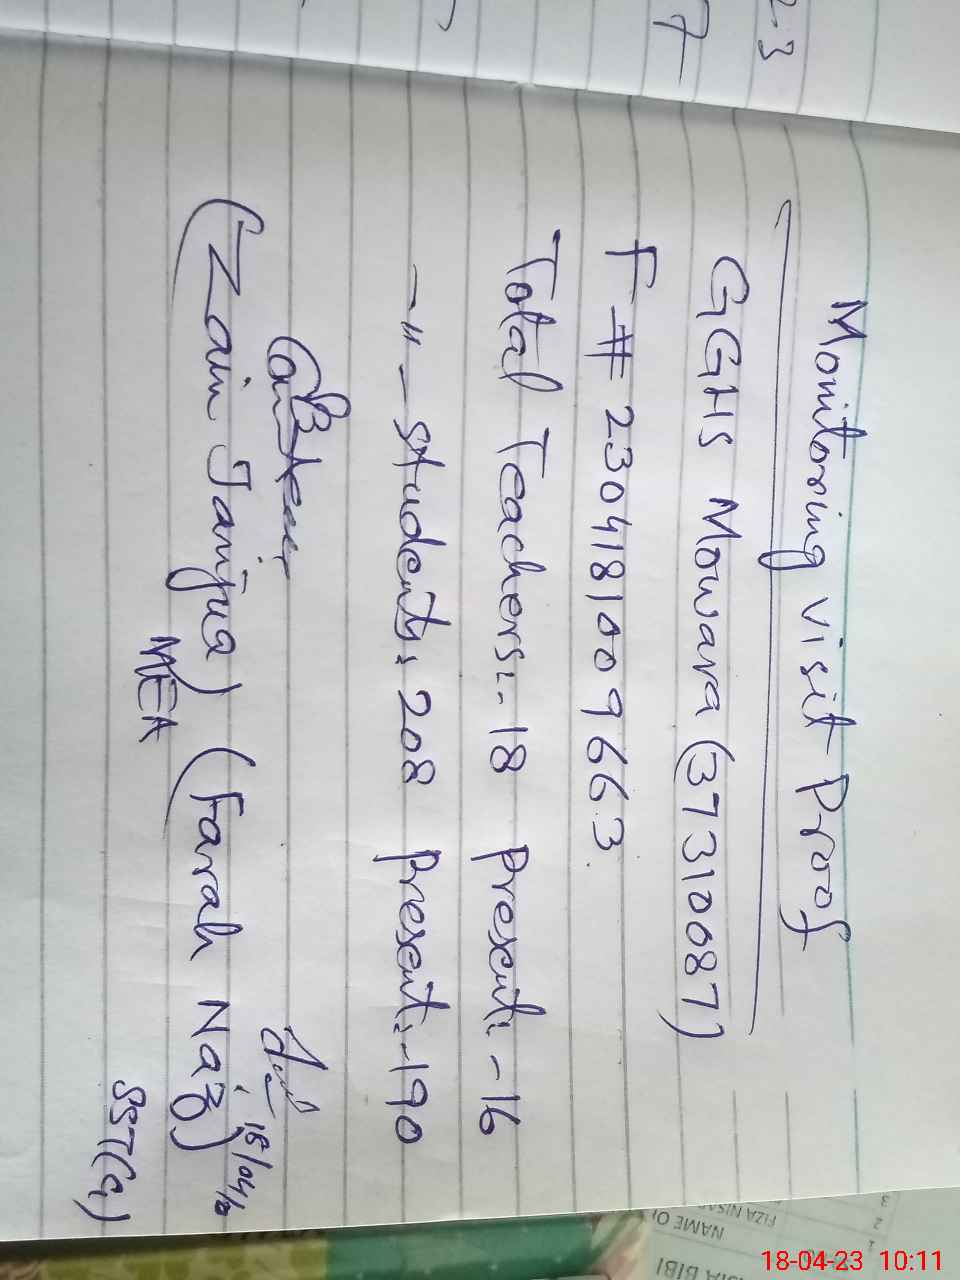 2.3
7
Monitoring Visit Proof
GGHS Mowara (37310087)
F# 2304181009663
Total Teachers:- 18 Present:- 16
-"- Students: 208 Present:- 190
18/04/
(Zain Janjua) (Farah Naz)
MEA SST(G)
3
2
1
FIZA NISA
NAME O
SIA BIBI
18-04-23 10:11